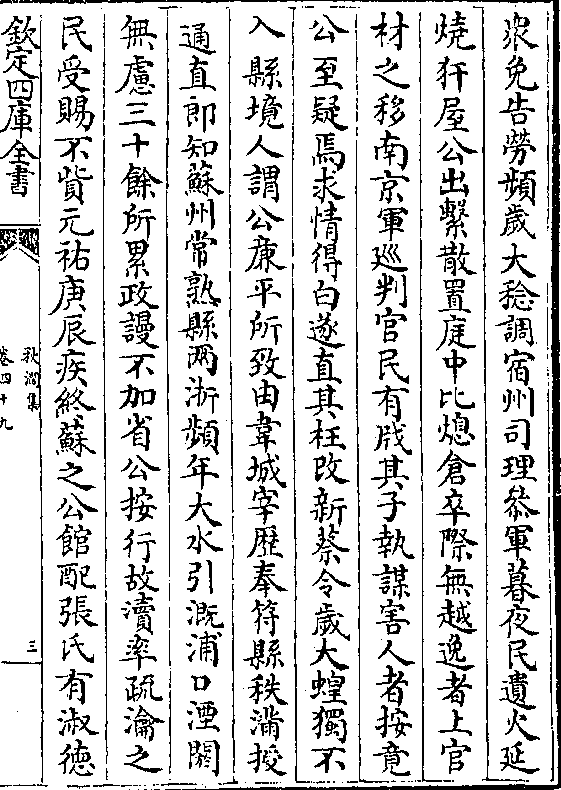 衆免告勞頻歲大稔調宿州司理叅軍暮夜民遺火延
燒犴屋公出繫散置庭中比熄倉卒際無越逸者上官
材之移南京軍廵判官民有戕其子執謀害人者按竟
公至疑焉求情得白遂直其枉改新蔡令歲大蝗獨不
入縣境人謂公亷平所致由韋城宰歴奉符縣秩滿授
通直郎知蘇州常熟縣兩浙頻年大水引溉浦口湮閼
無慮三十餘所累政謾不加省公按行故瀆率疏瀹之
民受賜不貲元祐庚辰疾終蘇之公館配張氏有淑德
欽定四庫全書
秋澗集
卷四十九
三